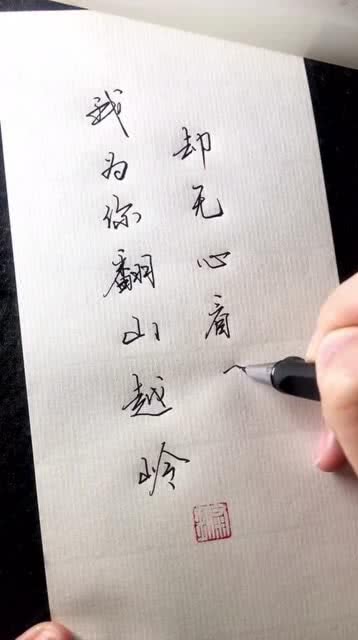 我为你翻山越岭
却无心看